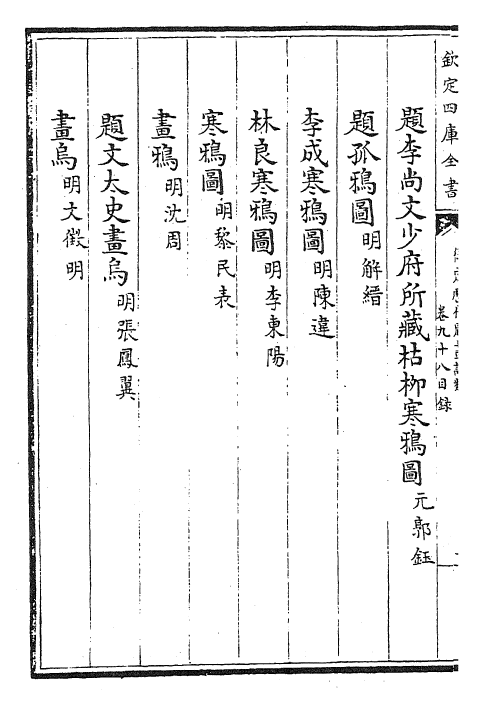 欽定四庫全書
卷九十八目録
題李尚文少府所藏枯柳寒鴉圖 元郭鈺
題孤鴉圖 明解縉
李成寒鴉圖 明陳違
林良寒鴉圖 明李東陽
寒鴉圖 明黎民表
畫鴉 明沈周
題文太史畫烏 明張鳳翼
畫烏 明文徵明